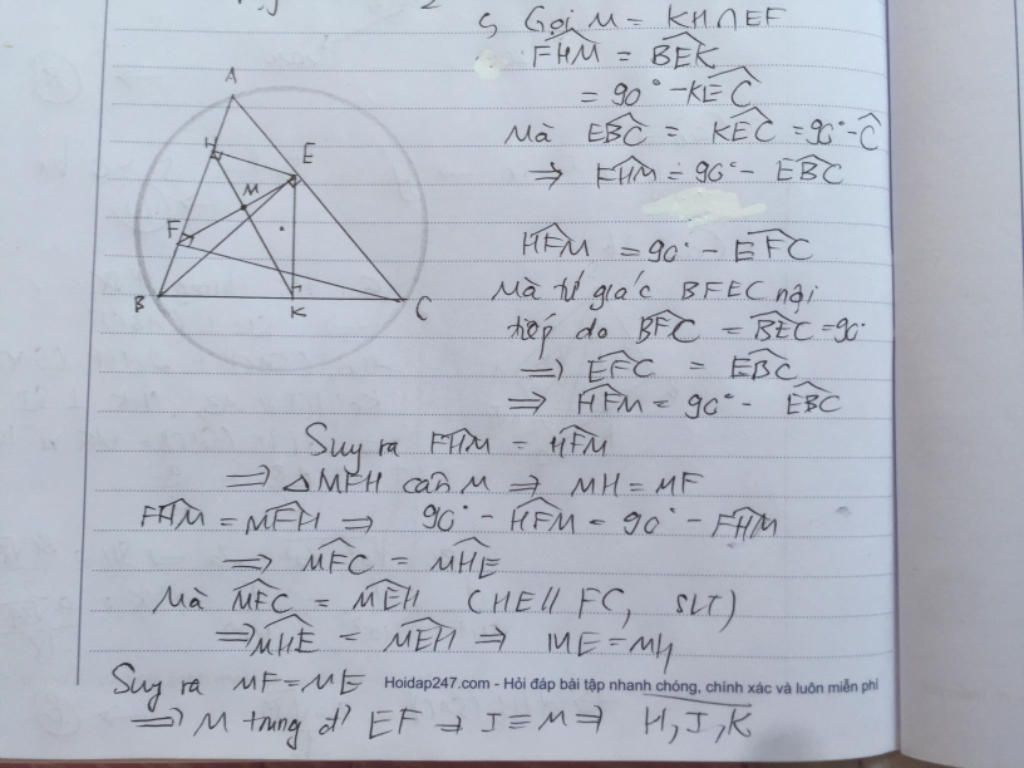 c, Gọi M = KH∩EF
FHM = BEK
= 90° - KEC
Mà EBC = KEC = 90° - C
⇒ FHM = 90° - EBC
A
H
E
M
F
B
K
C
HFM = 90° - EFC
Mà tứ giác BFEC nội
tiếp do BFC = BEC = 90°
⇒ EFC = EBC
⇒ HFM = 90° - EBC
Suy ra FHM = HFM
⇒ △MFH cân M ⇒ MH = MF
FHM = MFH ⇒ 90° - HFM = 90° - FHM
⇒ MFC = MHE
Mà MFC = MEH (HE // FC, SLT)
⇒ MHE = MEH ⇒ ME = MH
Suy ra MF = ME
Hoidap247.com - Hỏi đáp bài tập nhanh chóng, chính xác và luôn miễn phí
⇒ M trung đ' EF ⇒ J ≡ M ⇒ H, J, K